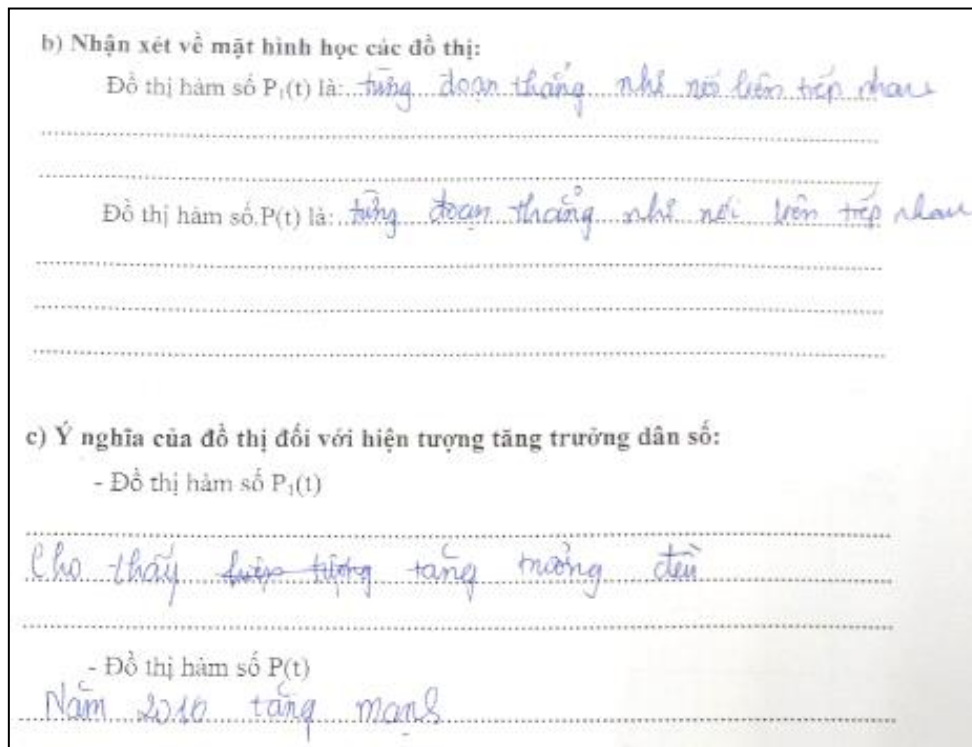 b) Nhận xét về mặt hình học các đồ thị:
Đồ thị hàm số P₁(t) là: từng đoạn thẳng nhỏ nối liên tiếp nhau
Đồ thị hàm số P(t) là: từng đoạn thẳng nhỏ nối liên tiếp nhau
c) Ý nghĩa của đồ thị đối với hiện tượng tăng trưởng dân số:
- Đồ thị hàm số P₁(t)
Cho thấy hiện tượng tăng trưởng đều
- Đồ thị hàm số P(t)
Năm 2010 tăng mạnh